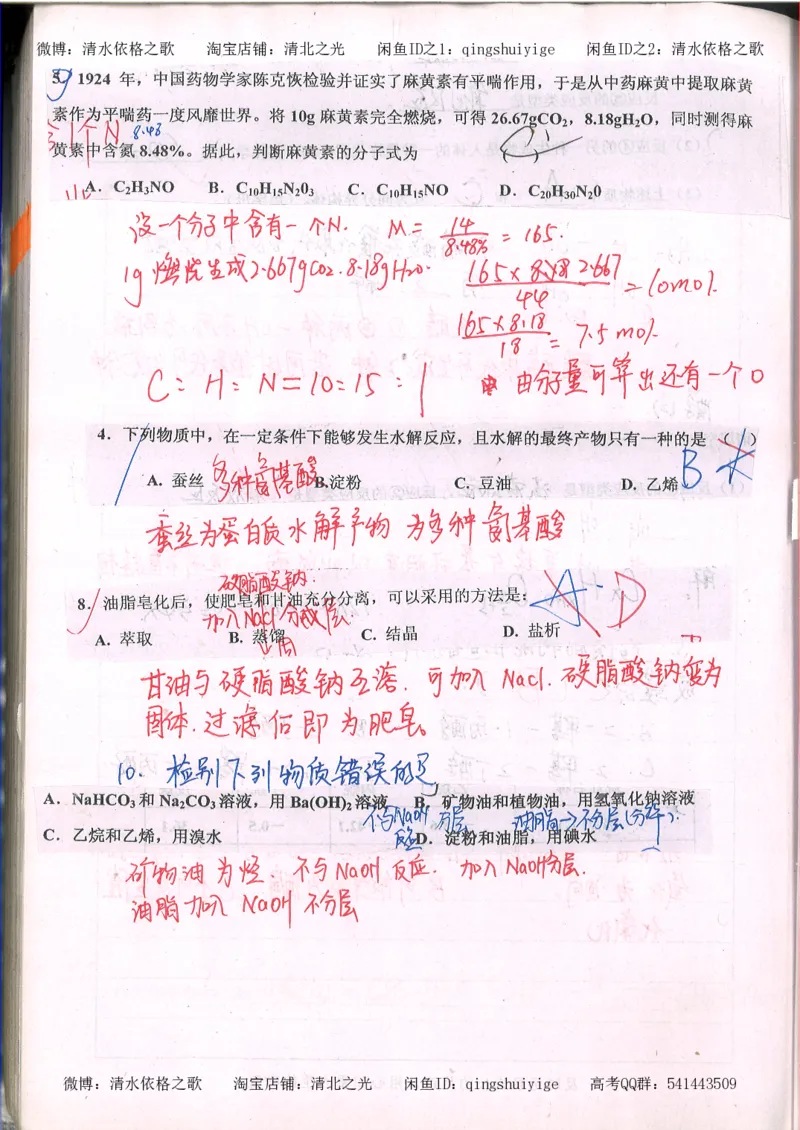 微博：清水依格之歌 淘宝店铺：清北之光 闲鱼ID之1：qingshuiyige 闲鱼ID之2：清水依格之歌
5. 1924 年，中国药物学家陈克恢检验并证实了麻黄素有平喘作用，于是从中药麻黄中提取麻黄
素作为平喘药一度风靡世界。将 10g 麻黄素完全燃烧，可得 26.67gCO₂，8.18gH₂O，同时测得麻
1个N 8.48
黄素中含氮 8.48%。据此，判断麻黄素的分子式为
A．C₂H₃NO B．C₁₀H₁₅N₂0₃ C．C₁₀H₁₅NO D．C₂₀H₃₀N₂0
设一个分子中含有一个N. M= 14/8.48% = 165.
1g 燃烧生成2.667gCO2. 8.18gH2O. 165×2.667/44 = 10mol.
165×8.18/18 = 7.5mol.
C：H：N=10：15：1 由分子量可算出还有一个O
4．下列物质中，在一定条件下能够发生水解反应，且水解的最终产物只有一种的是 （ ） B
A．蚕丝 多种氨基酸 B.淀粉 C．豆油 D．乙烯
蚕丝为蛋白质水解产物 为多种氨基酸
硬脂酸钠.
8．油脂皂化后，使肥皂和甘油充分分离，可以采用的方法是： A. D
加入NaCl分成层.
A．萃取 B．蒸馏 C．结晶 D．盐析
甘油与硬脂酸钠互溶. 可加入 NaCl. 硬脂酸钠变为
固体.过滤后即为肥皂。
10. 检别下列物质错误的是
A．NaHCO₃ 和 Na₂CO₃ 溶液，用 Ba(OH)₂ 溶液 B．矿物油和植物油，用氢氧化钠溶液
不与NaOH 分层 油脂→不分层
反应
C．乙烷和乙烯，用溴水 D．淀粉和油脂，用碘水
矿物油为烃. 不与NaOH反应. 加入NaOH分层.
油脂加入 NaOH 不分层
微博：清水依格之歌 淘宝店铺：清北之光 闲鱼ID：qingshuiyige 高考QQ群：541443509